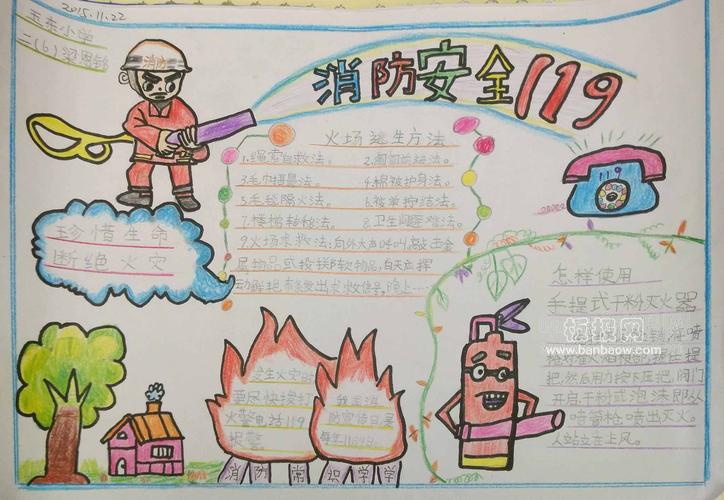 2015.11.22
玉东小学
二(6)梁恩
消防
消防安全119
火场逃生方法
1.绳索自救法。 2.匍匐前进法。
3.毛巾捂鼻法。 4.棉被护身法。
5.毛毯隔火法。 6.被单拧结法。
7.楼梯转移法。 8.卫生间避难法。
9.火场求救法:向外大声呼叫,敲击金
属物品或投掷软物品,白天应挥
动鲜艳布条发出求救信号,晚上……
119
珍惜生命
断绝火灾
怎样使用
手提式干粉灭火器
喷
把,然后用力按下压把,阀门
开启,干粉或泡沫即从
喷管枪喷出灭火。
人站立在上风。
发生火灾时
要尽快拨打
火警电话119
报警
我国消
防宣传日是
每年11月9日。
消防常识学学
板报网
www.banbaow.com